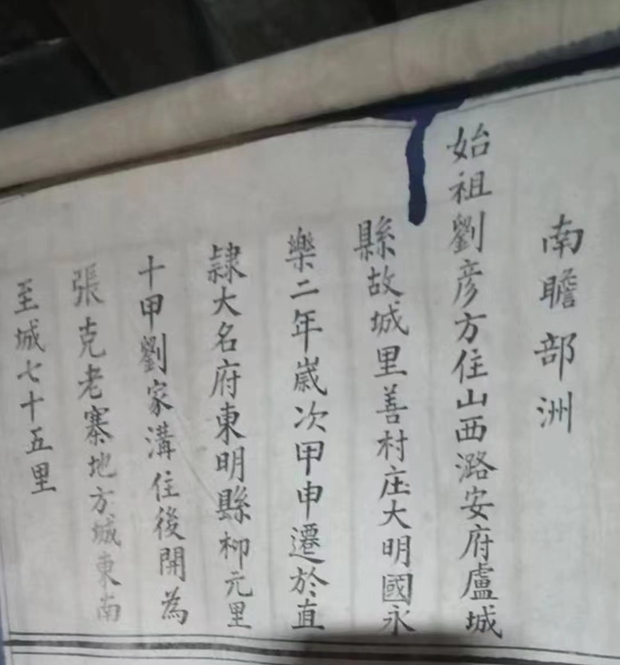 南瞻部洲
始祖劉彦方住山西潞安府盧城
縣故城里善村庄大明國永
樂二年歲次甲申遷於直
隸大名府東明縣柳元里
十甲劉家溝住後開為
張克老寨地方城東南
至城七十五里